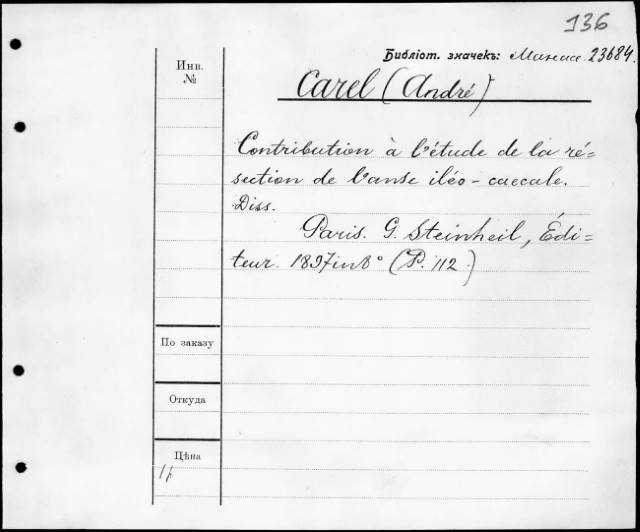 136
Библіот. значекъ: 23684.
Инв.
№
Carel (André)
Contribution à l'étude de la ré=
section de l'anse iléo-caecale.
Diss.
Paris. G. Steinheil, Édi=
teur. 1897 in 8° (P. 112.)
По заказу
Откуда
Цѣна